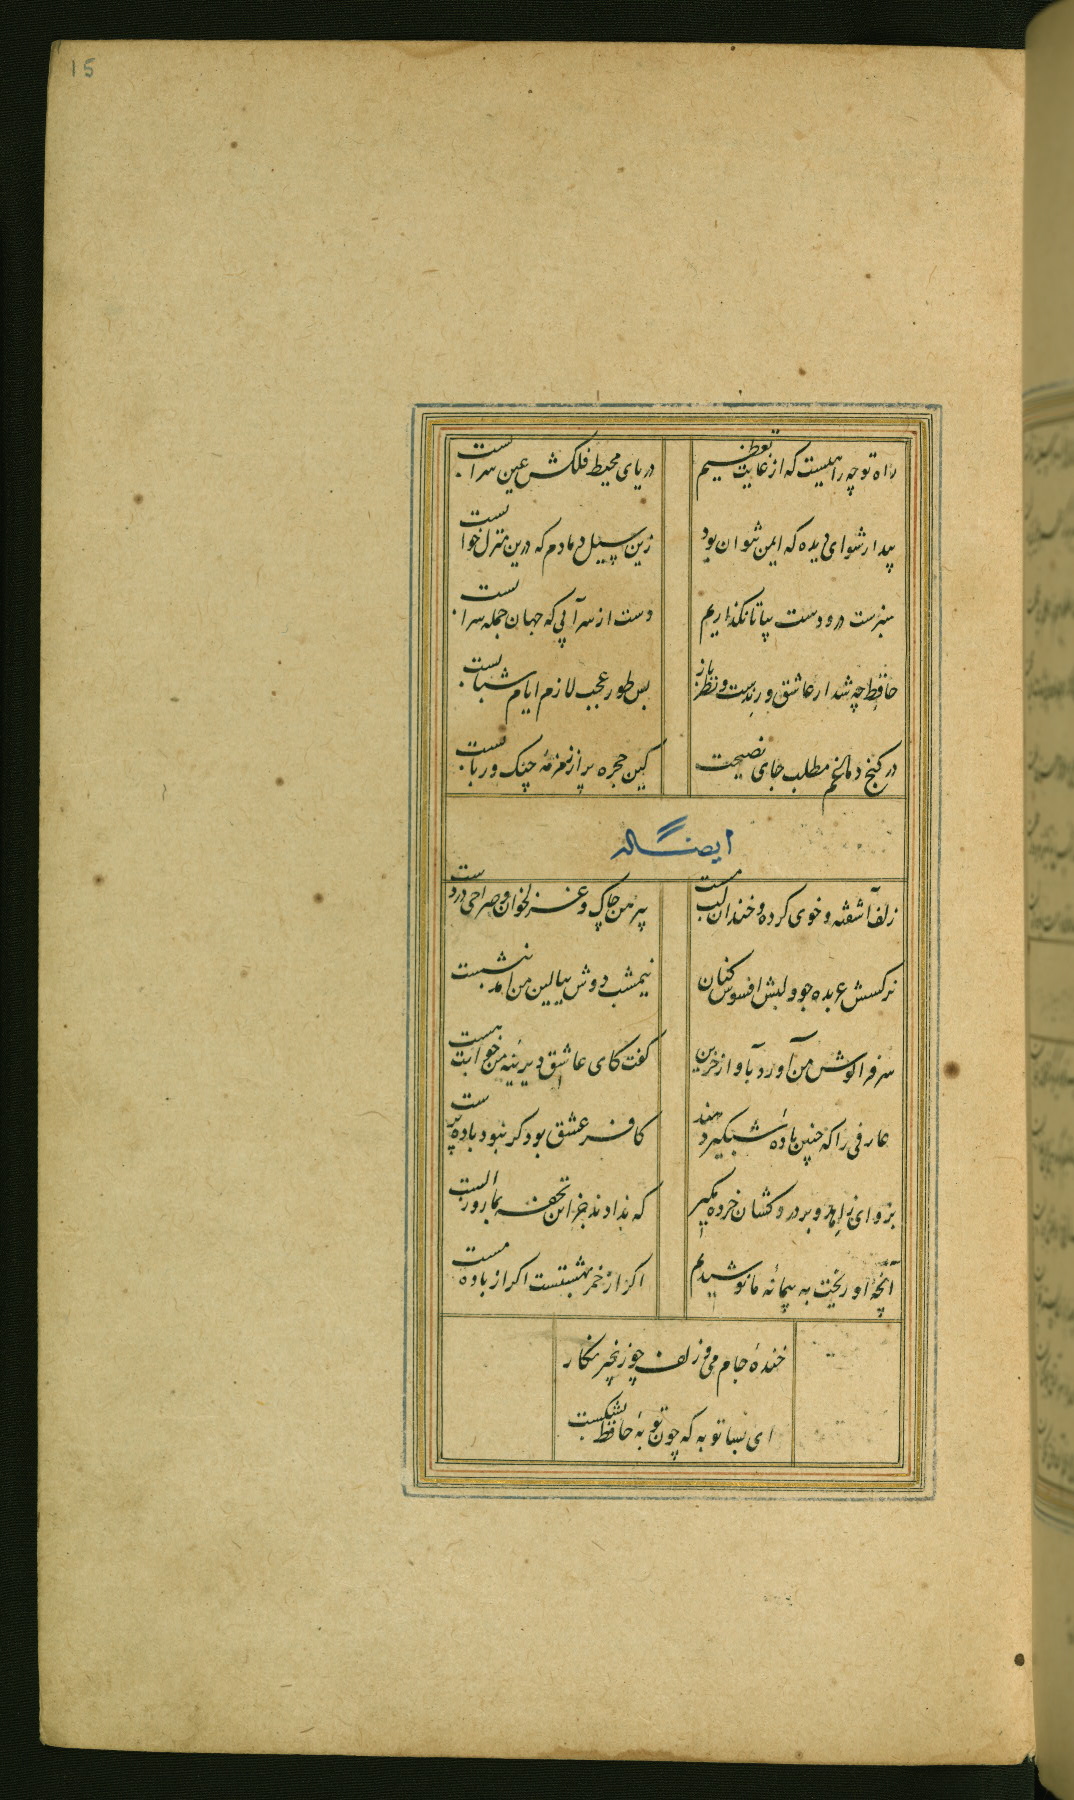 15
راه تو چه راهیست که از غایت تعظیم
دریای محیط فلکش عین سرابست
بیدار شو ای دیده که ایمن نتوان بود
زین سیل دمادم که درین منزل خوابست
سبزست در و دشت بیا تا نگذاریم
دست از سر آبی که جهان جمله سرابست
حافظ چه شد ار عاشق و رندست و نظرباز
بس طور عجب لازم ایام شبابست
در کنج دماغم مطلب جای نصیحت
کین حجره پر از زمزمهٔ چنک و ربابست
ایضاله
زلف آشفته و خوی کرده و خندان لب مست
پیرهن چاک و غزلخوان و صراحی در دست
نرکسش عربده جو و لبش افسوس کنان
نیمشب دوش ببالین من آمد بنشست
سر فرا کوش من آورد بآواز حزین
کفت کای عاشق دیرینه من خوابت هست
عارفی را که چنین بادهٔ شبکیر دهند
کافر عشق بود کر نبود باده پرست
برو ای زاهد و بر درد کشان خرده مکیر
که ندادند جز این تحفه بما روز الست
آنچه او ریخت به پیمانهٔ ما نوشیدیم
اکر از خمر بهشتست اکر از باده مست
خندهٔ جام می و زلف چو زنجیر نکار
ای بسا توبه که چون توبهٔ حافظ بشکست